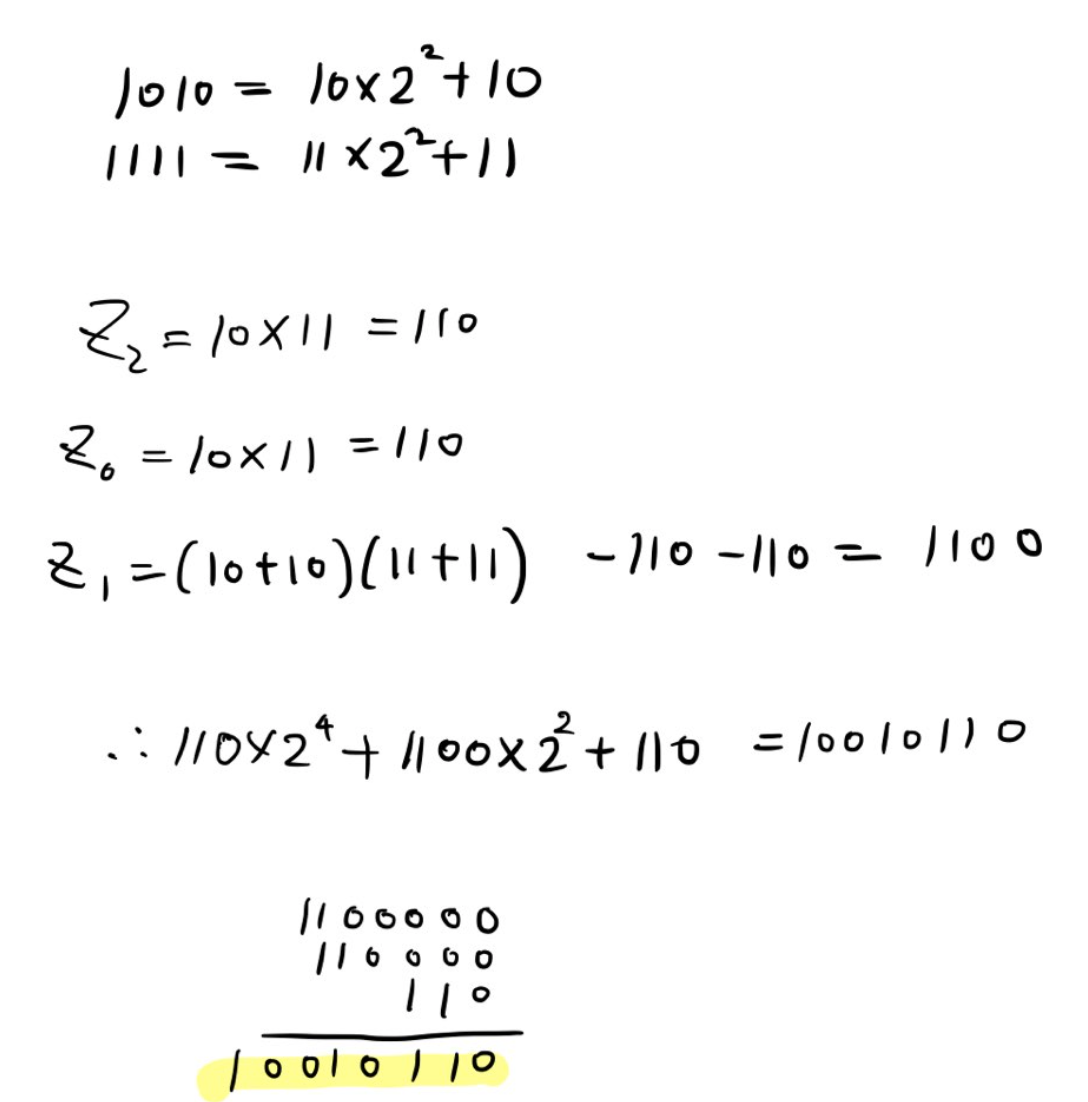 1010 = 10×2²+10
1111 = 11×2²+11
Z₂ = 10×11 = 110
Z₀ = 10×11 = 110
Z₁ = (10+10)(11+11) -110 -110 = 1100
∴ 110×2⁴ + 1100×2² + 110 = 10010110
1100000
110000
110
10010110